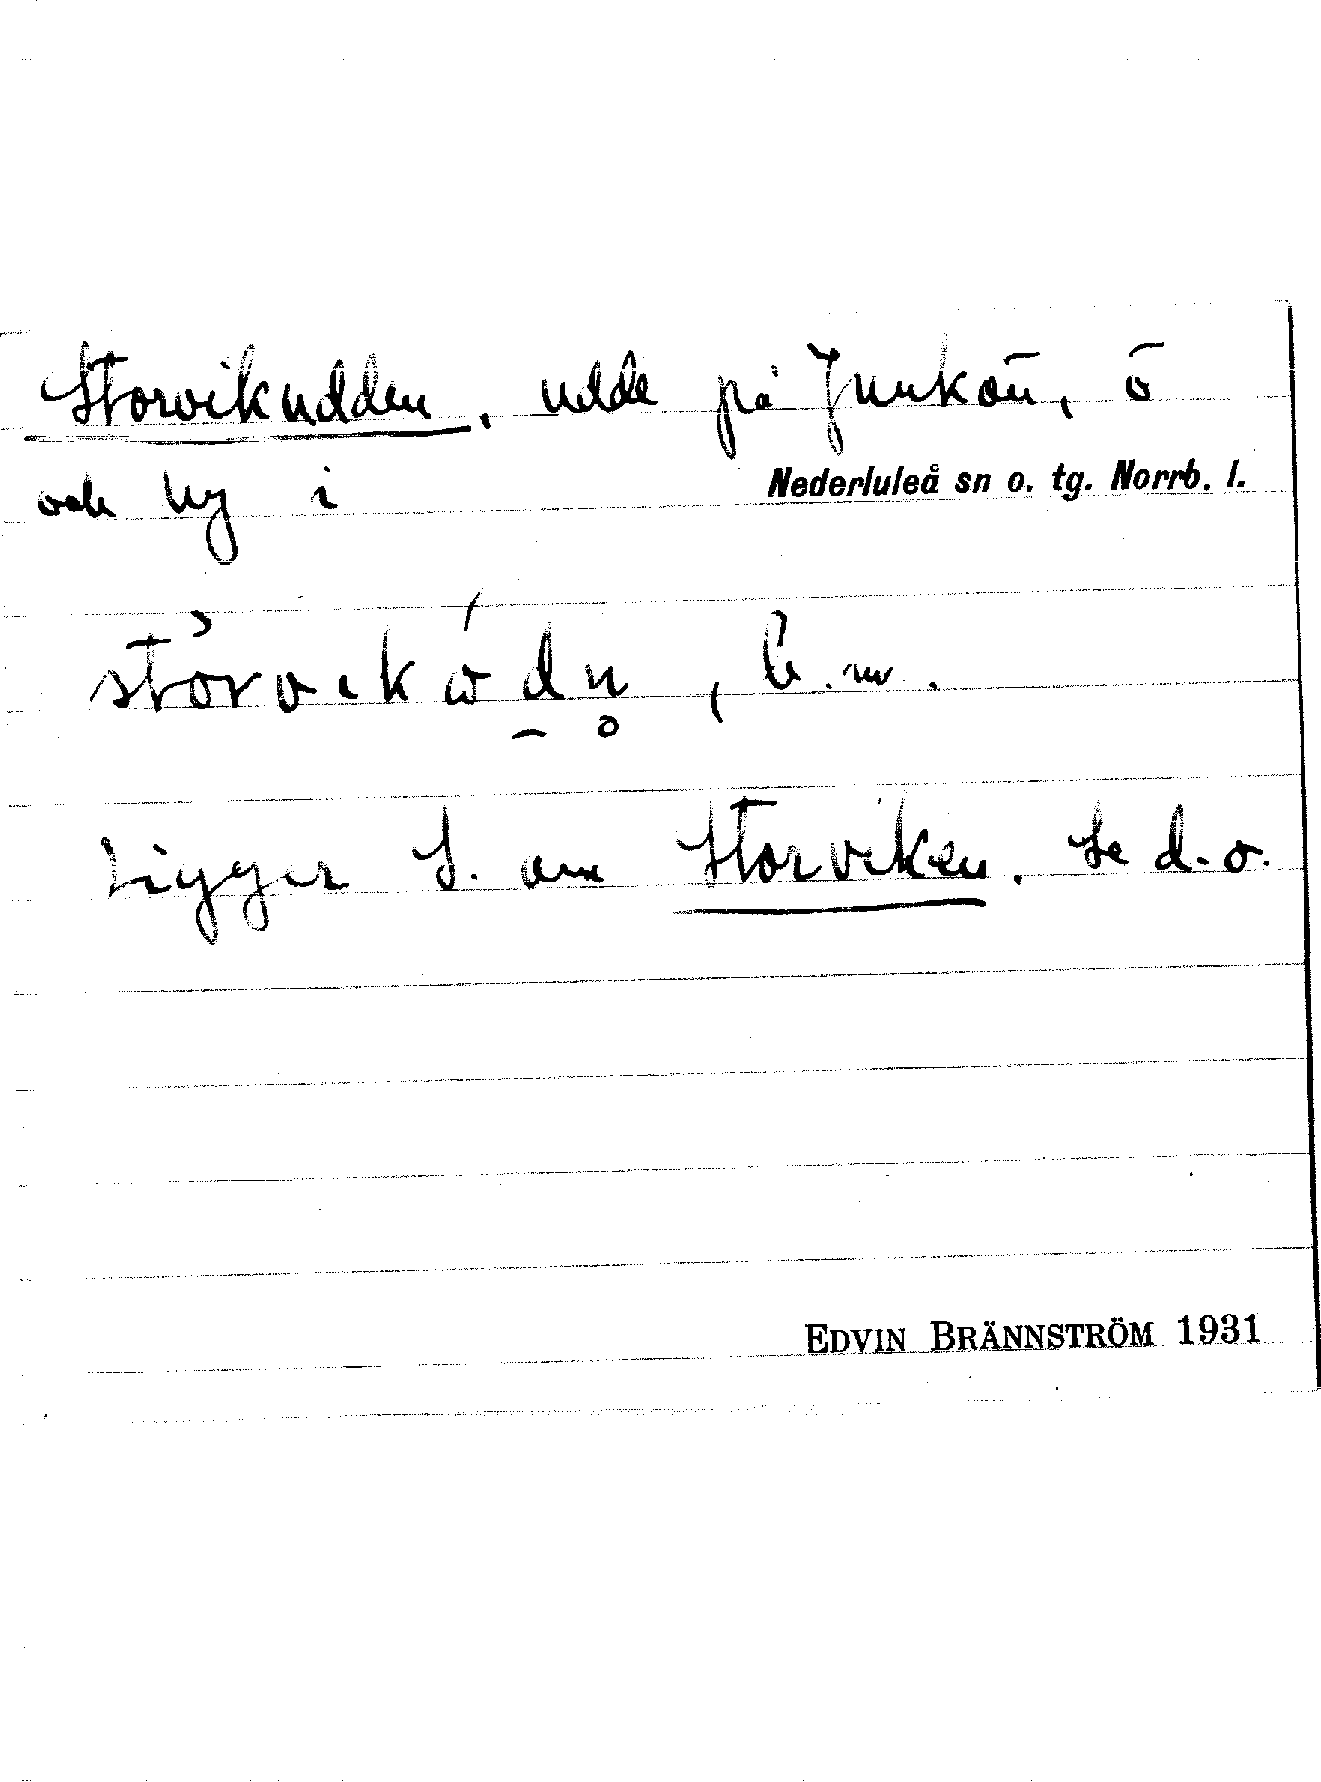 Storvikudden, udde på Junkön, ö
och by i Nederluleå sn o. tg. Norrb. l.
b. m.
Ligger S. om Storviken. Se d. o.
EDVIN BRÄNNSTRÖM 1931